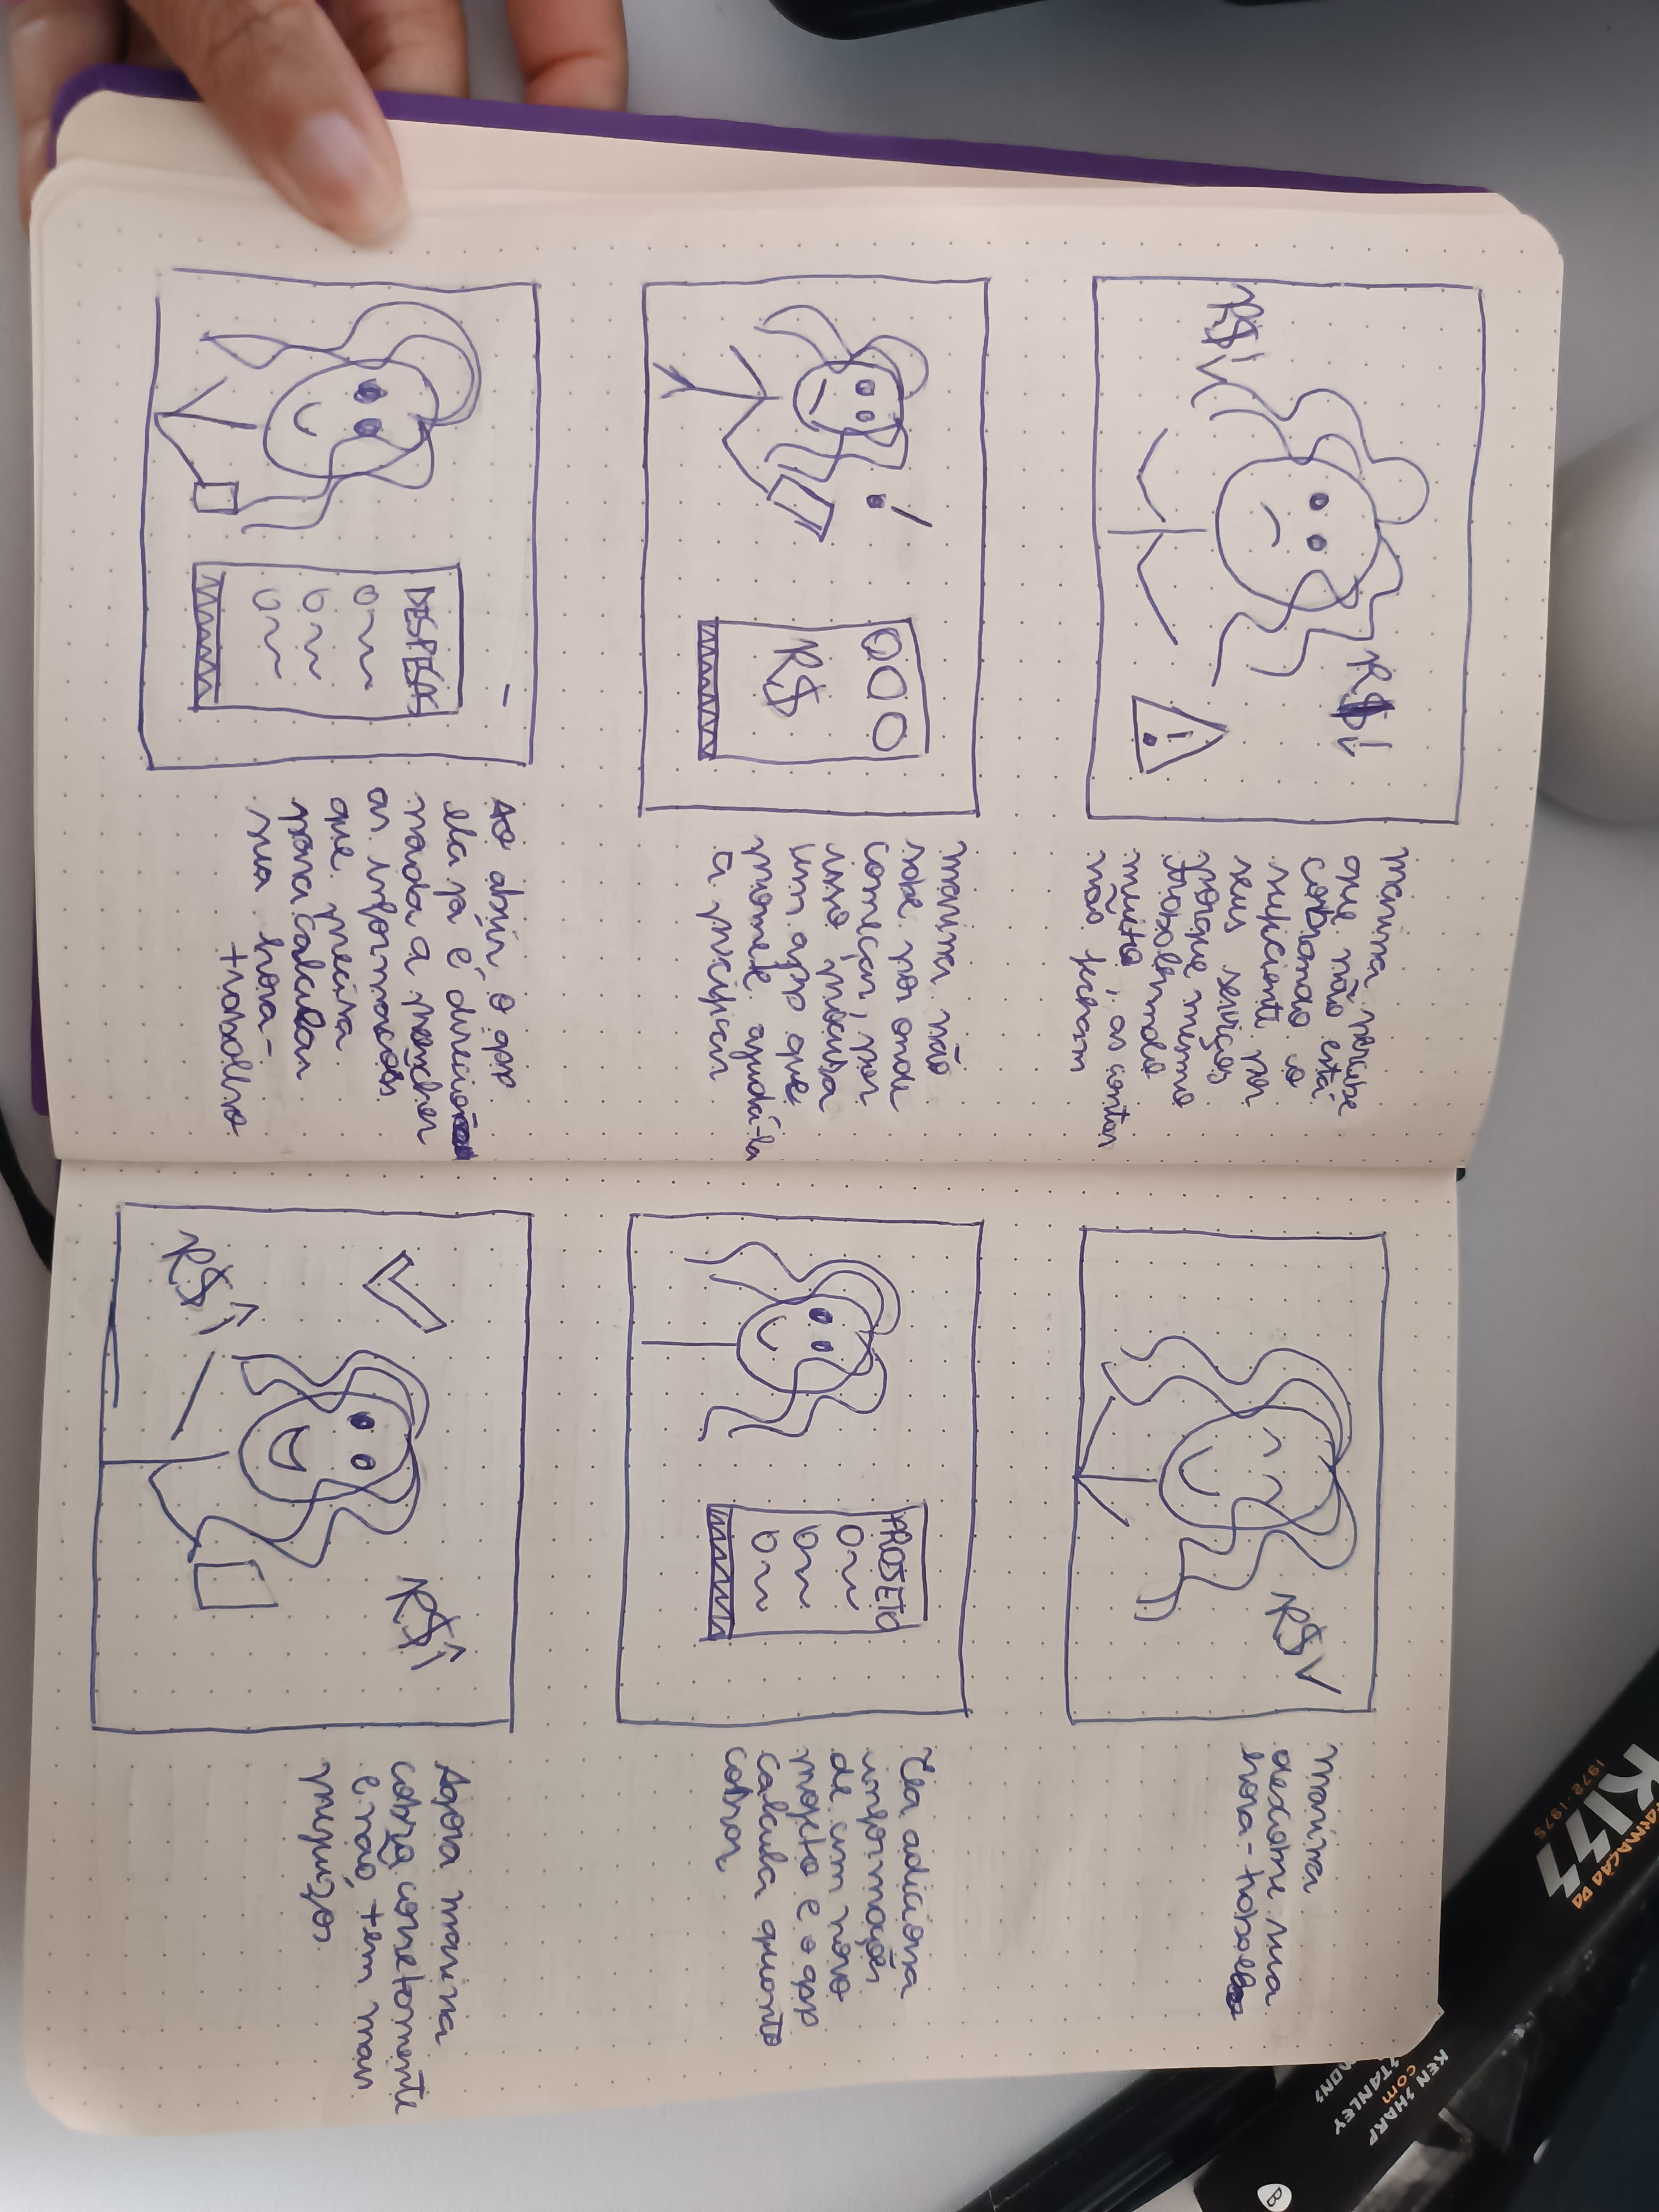 R$!
R$!
!
Marina percebe
que não está
cobrando o
suficiente por
seus serviços
porque mesmo
trabalhando
muito, as contas
não fecham
!
R$
Marina não
sabe por onde
começar, por
isso procura
um app que
promete ajudá-la
a precificar
DESPESAS
Ao abrir o app
ela já é direcio
nada a preencher
as informações
que precisa
para calcular
sua hora-
trabalho
R$
Marina
descobre sua
hora-trabalho
PROJETO
Ela adiciona
informações
de um novo
projeto e o app
calcula quanto
cobrar
R$
R$
Agora Marina
cobra corretamente
e não tem mais
prejuízos
KISS
1972-1975
FORMAÇÃO DA
KEN SHARP
com
STANLEY
B